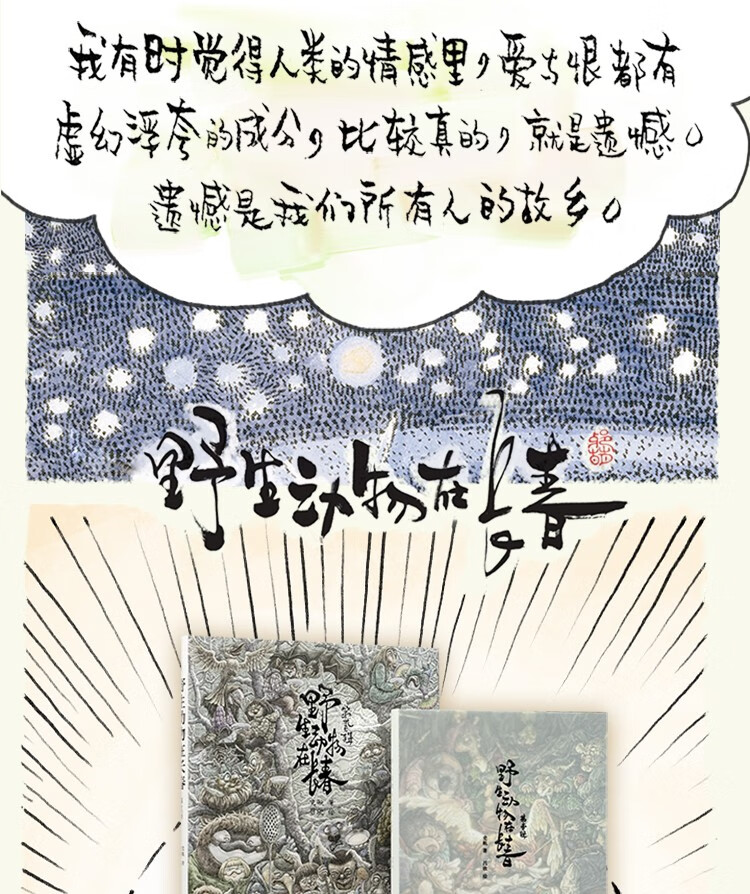 我有时觉得人类的情感里，爱与恨都有
虚幻浮夸的成分，比较真的，就是遗憾。
遗憾是我们所有人的故乡。
野生动物在長春
野生动物在長春
野生动物在長春